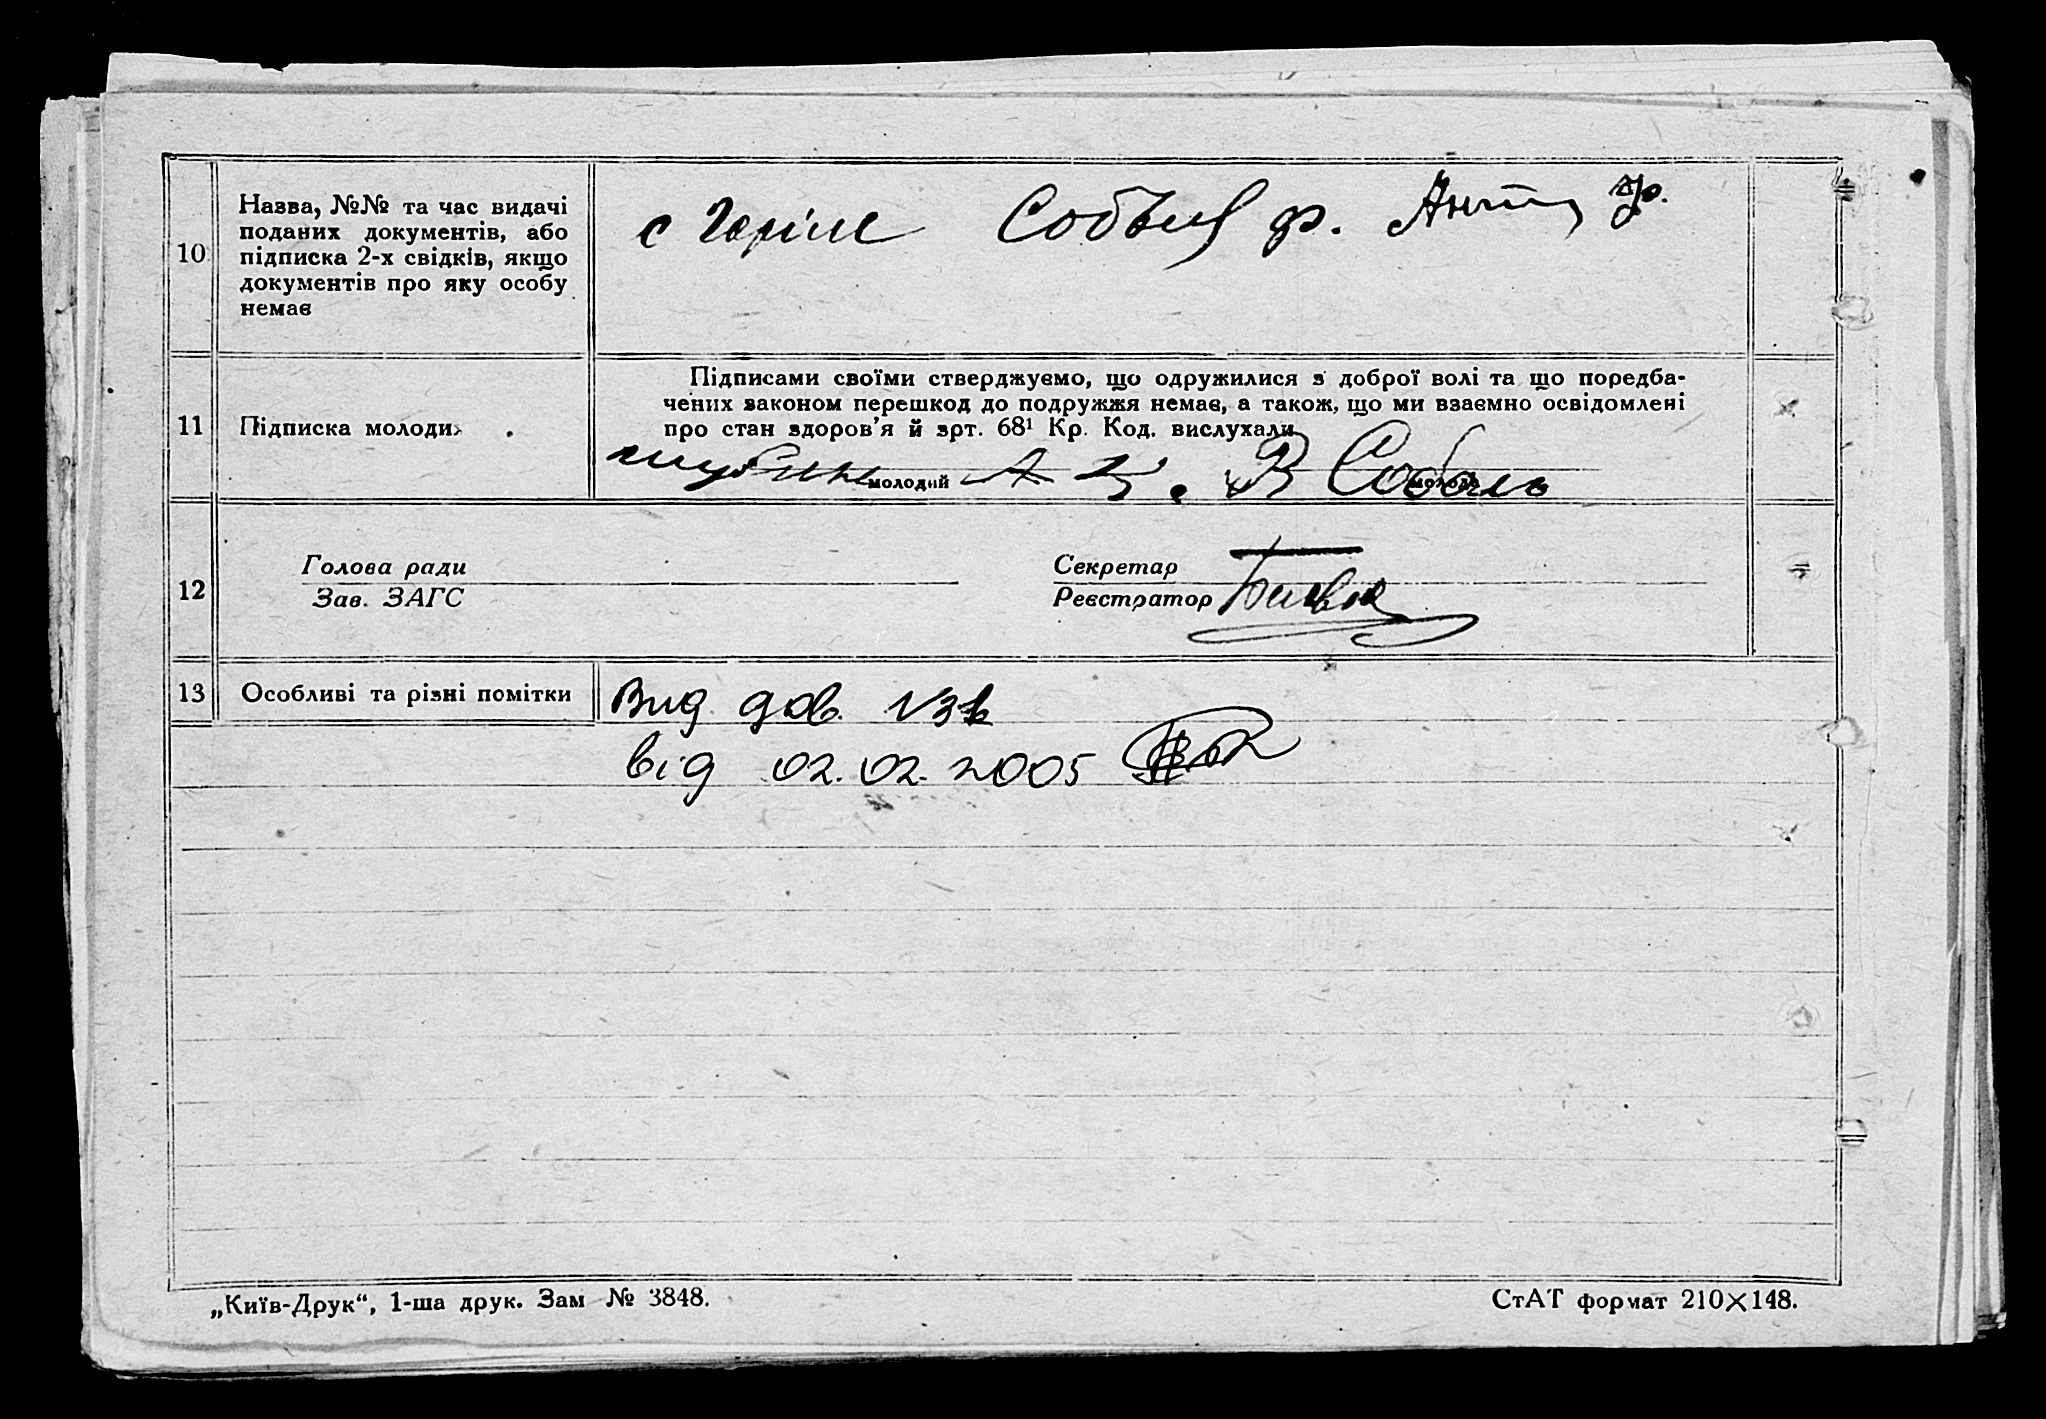 10
Назва, №№ та час видачі
поданих документів, або
підписка 2-х свідків, якщо
документів про яку особу
немає
с
р.
11
Підписка молоди
Підписами своїми стверджуємо, що одружилися з доброї волі та що поредба-
чених законом перешкод до подружжя немає, а також, що ми взаємно освідомлені
про стан здоров'я й зрт. 68¹ Кр. Код. вислухали
молодий
молода
В Соболь
12
Голова ради
Зав. ЗАГС
Секретар
Реєстратор
13
Особливі та різні помітки
Вид. дов.
від 02.02.2005
„Київ-Друк“, 1-ша друк. Зам № 3848.
СтАТ формат 210×148.